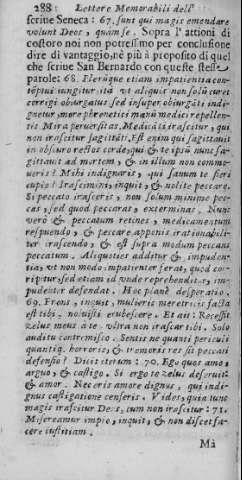 288 Lettere Memorabili dell'
scriue Seneca: 67. sunt qui magis emendare
volunt Deos, quam se. Sopra l'attioni di
costoro noi non potressimo per conclusione
dire di vantaggio, nè più à proposito di quel
che scriue San Bernardo con queste stesse
parole: 68. Plerùque etiam impatientia con
iungitur ita vt aliquis non solũ curet
corrigi obiurgatus sed insuper obiurgãti indi-
gnetur, more phrenetici manũ medici repellen-
tis Mira peruersitas, Medicãti irascitur, qui
non irascitur sagittãti, Est enim qui sagittauit
in obscuro rectos corde, qui & te ipsũ nunc sa-
gittauit ad mortem, & in illum non commo-
ueris? Mihi indignaris, qui sanum te fieri
cupio? Irascimini, inquit, & nolite peccare.
Si peccato irasceris, non solum minime pec-
cas, sed quod peccaras, exterminas. Nunc
verò & peccatum retines, medicamentum
respuendo, & peccare appenis irrationabili-
ter irascendo, & est supra modum peccans
peccatum. Aliquoties additur & impuden-
tia, vt non modo impatienter ferat, quod cor-
ripitur, sed etiam id vnde reprehenditur, im-
pudenter defendat. Hoc planè desperatio.
69. Frons, inquit, mulieris meretricis facta
est tibi, noluisti erubescere. Et ait: Recessit
zelus meus à te vltra non irascar tibi. Solo
auditu contremisco. Sentis ne quanti periculi
quantiq. horroris, & tremoris res sit peccati
defensio? Dicit iterum: 70. Ego quos amo,
arguo, & castigo. Si ergo te zelus deseruit
& amor. Nec eris amore dignus, qui indi-
gnus castigatione censeris. Vides, quia tunc
magis irascitur Deus, cum non irascitur: 71.
Misereamur impio, inquit, & non discet fa-
cere iustitiam.
Mà